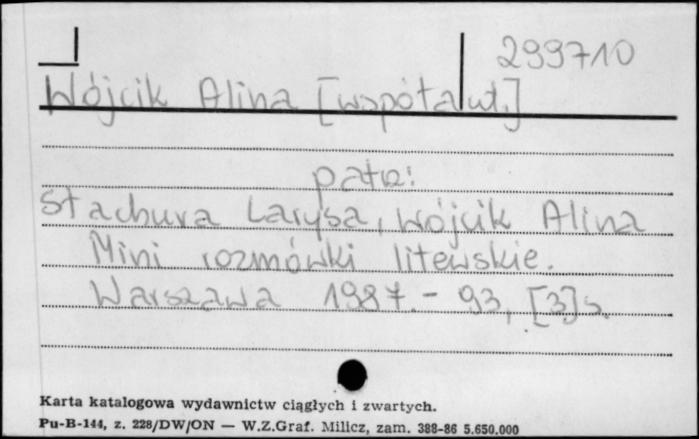 299710
Wójcik Alina [współaut.]
patrz:
Stachura Larysa, Wójcik Alina
Mini rozmówki litewskie.
Warszawa 1987. - 93, [3]s.
Karta katalogowa wydawnictw ciągłych i zwartych.
Pu-B-144, z. 228/DW/ON — W.Z.Graf. Milicz, zam. 388-86 5.650.000